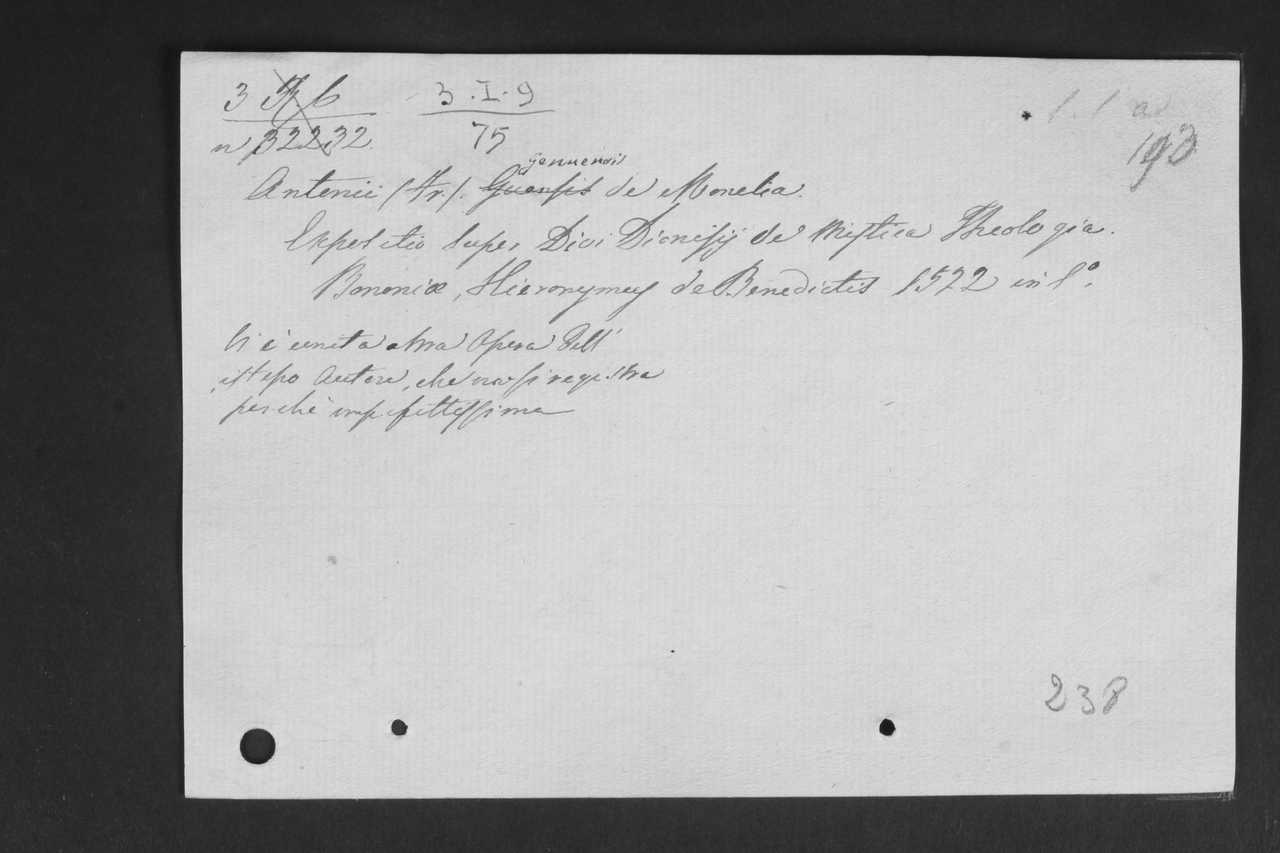 3 6
n 32232
3.I.9
75
193
gennensis
Antonii (Fr.). de Monelia.
Expositio super Divi Dionisij de Mistica Theologia.
Bononiæ, Hieronymus de Benedictis 1522 in 8.º
Vi è unita altra Opera dell'
istesso Autore, che non si registra
perchè imperfettissima
238